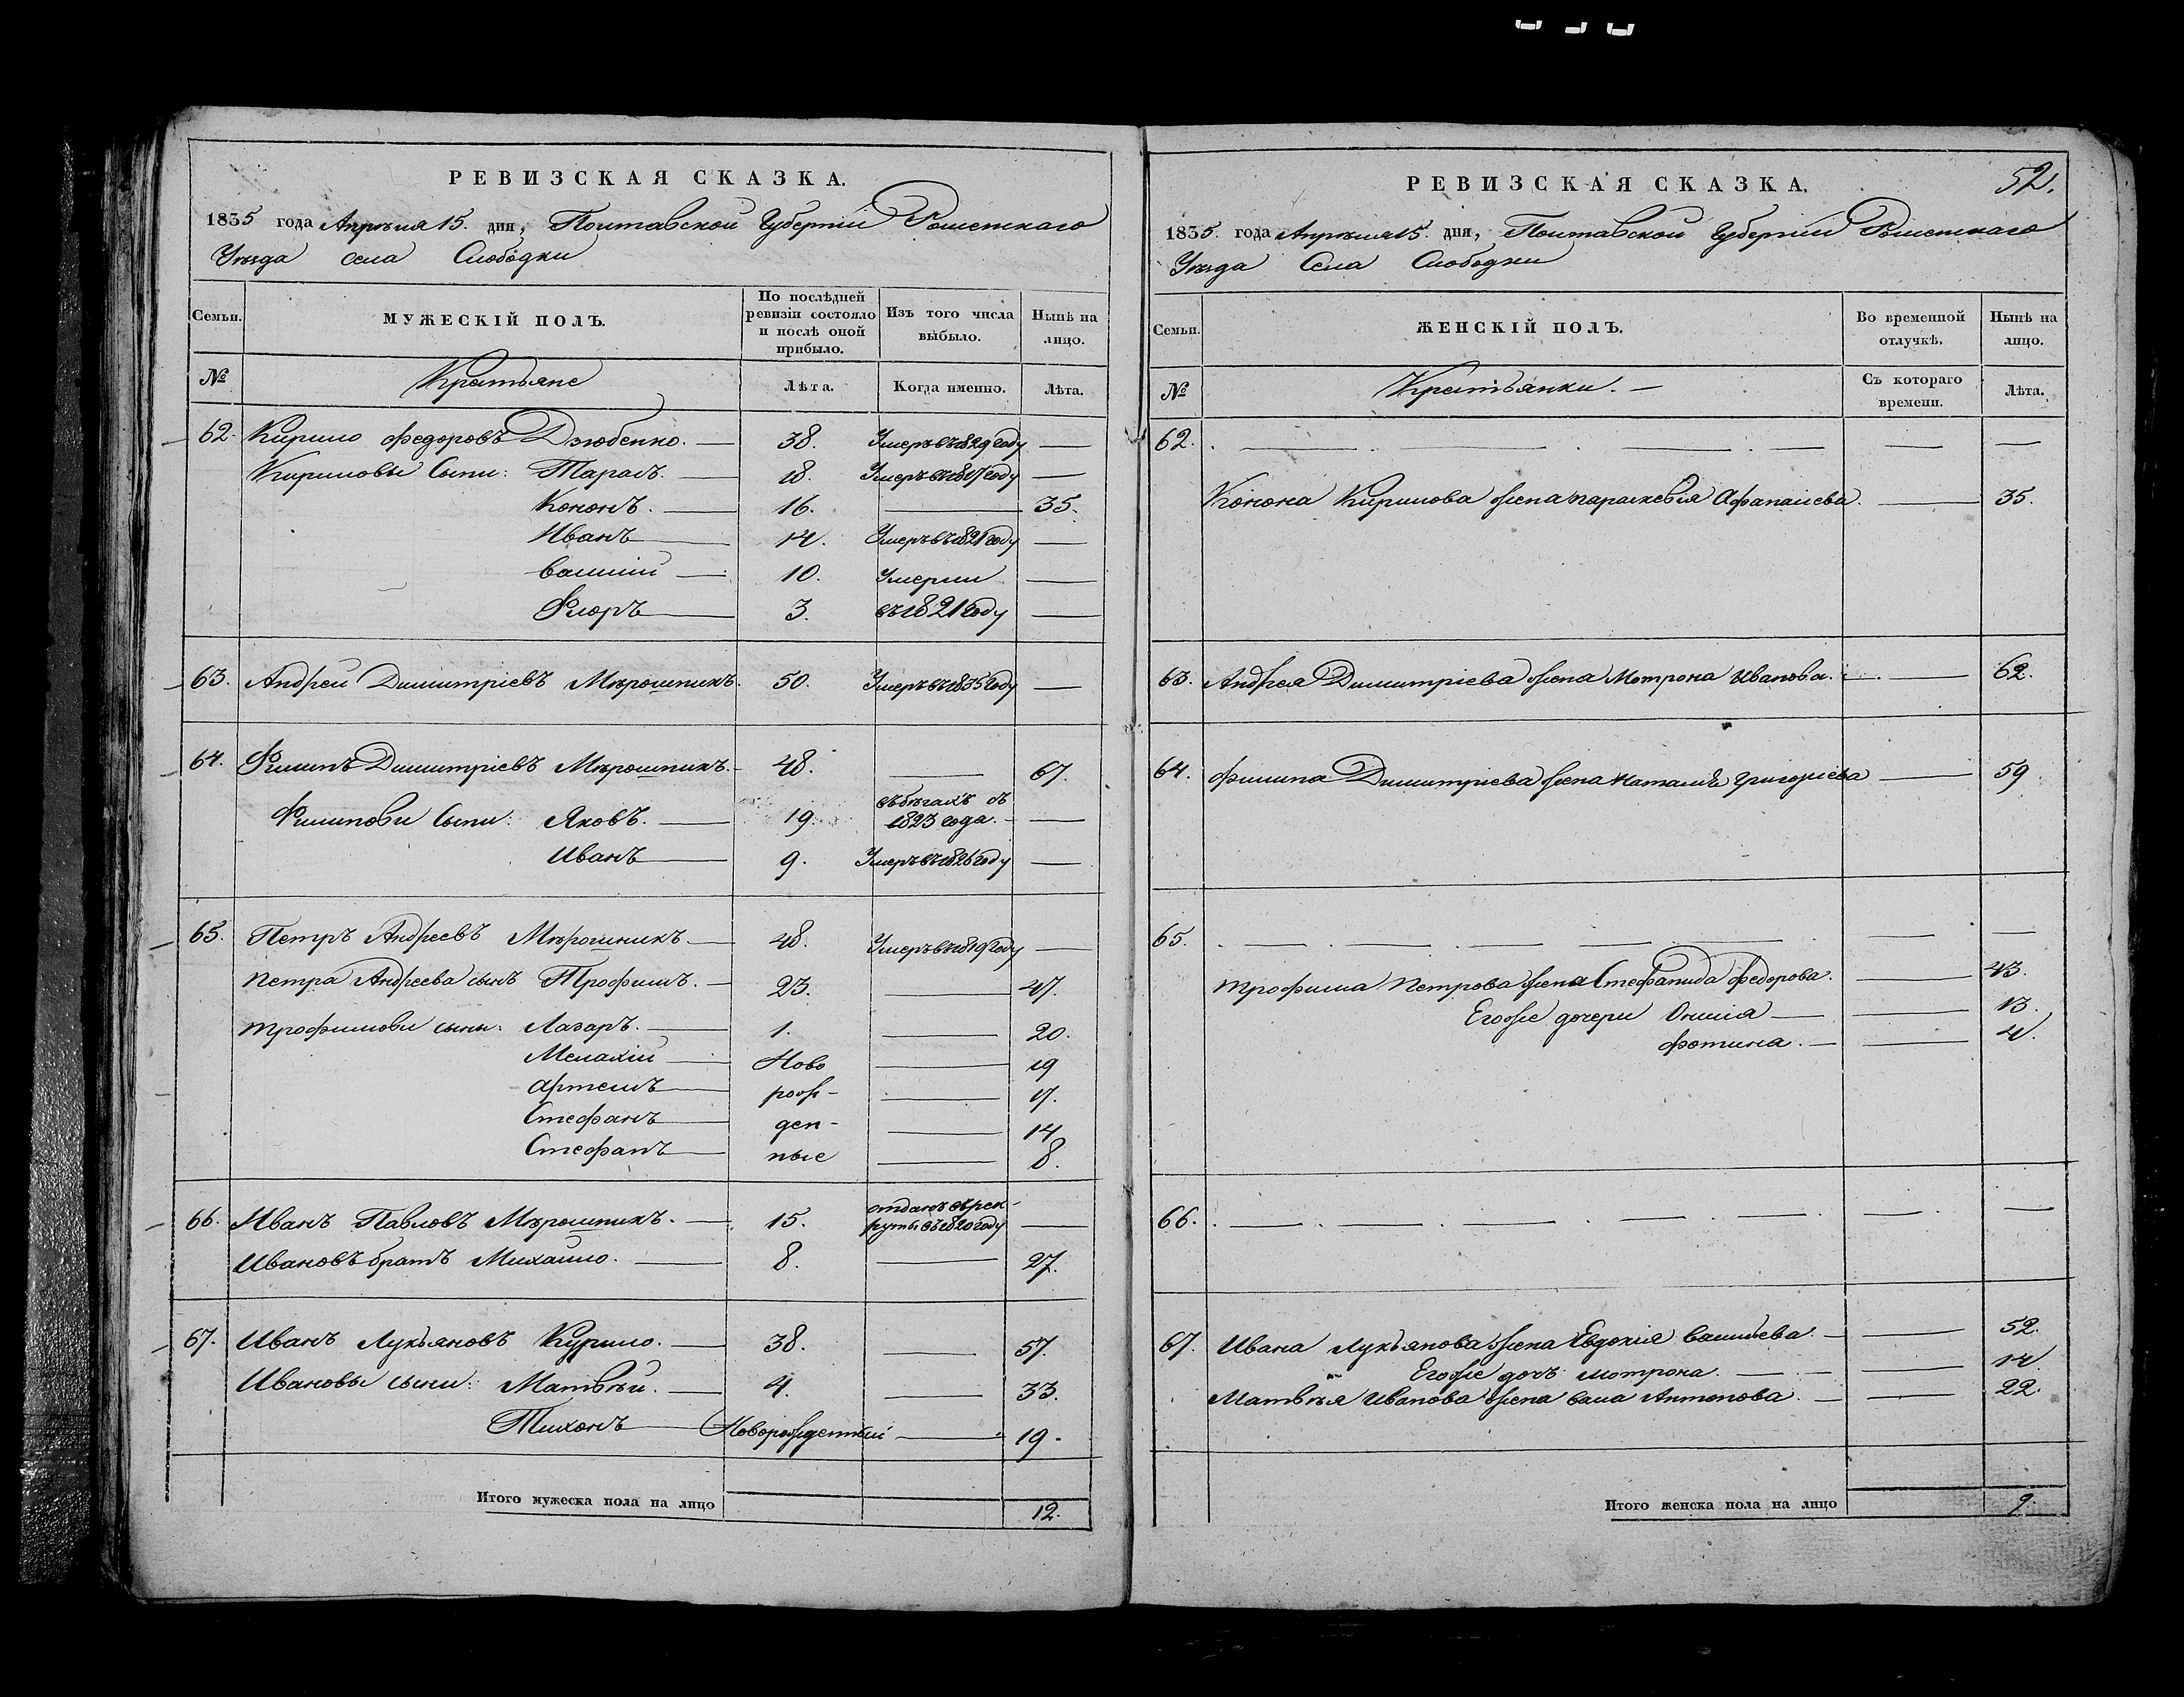 РЕВИЗСКАЯ СКАЗКА.
1835 года Апрѣля 15. дня, Полтавской Губерніи Роменскаго
Уѣзда села Слободки
Семьи. МУЖЕСКІЙ ПОЛЪ. По послѣдней ревизіи состояло и послѣ оной прибыло. Изъ того числа выбыло. Нынѣ на лицо.
№ Крестьяне Лѣта. Когда именно. Лѣта.
62. Кирило Федоровъ Дзюбенко. 38. Умеръ въ 1829 году
Кириловы Сыни: Тарасъ. 18. Умеръ въ 1817 году
Кононъ. 16. 35.
Иванъ 14. Умеръ въ 1821 году
Василій 10. Умерли
Флоръ 3. въ 1821 году
63. Андрей Димитріевъ Мѣрошникъ. 50. Умеръ въ 1835 году
64. Филипъ Димитріевъ Мѣрошникъ. 48. 67.
Филипови Сыни: Яковъ. 19. въ бѣгахъ съ 1823 года.
Иванъ 9. Умеръ въ 1826 году
65. Петръ Андреевъ Мѣрошникъ. 48. Умеръ въ 1819 году
Петра Андреева сынъ Трофимъ. 23. 47.
Трофимови сыны: Лазаръ. 1. 20.
Мелахій Ново 19
Артемъ рож- 17.
Стефанъ ден- 14
Стефанъ ные 8.
66. Иванъ Павловъ Мѣрошникъ. 15. отданъ въ рек-руты въ 1820 году
Ивановъ братъ Михайло. 8. 27.
67. Иванъ Лукьяновъ Курило. 38. 57.
Ивановы сыни: Матвѣй. 4. 33.
Тихонъ Новорожденный 19.
Итого мужеска пола на лицо 12.
52.
РЕВИЗСКАЯ СКАЗКА.
1835 года Апрѣля 15. дня, Полтавской Губерніи Роменскаго
Уѣзда Села Слободки
Семьи. ЖЕНСКІЙ ПОЛЪ. Во временной отлучкѣ. Нынѣ на лицо.
№ Крестьянки. Съ котораго времени. Лѣта.
62.
Конона Кирилова жена Параскевія Афанасіева. 35.
63. Андрея Димитріева жена Мотрона Иванова. 62.
64. Филипа Димитріева жена Наталія Григоріева 59
65.
Трофима Петрова жена Стефанида Федорова. 43.
Егоже дочери 13.
Фотина. 4.
66.
67. Ивана Лукьянова жена Евдокія Васильева. 52.
Егоже дочь Мотрона. 14.
Матвѣя Иванова жена Антонова. 22.
Итого женска пола на лицо 9.